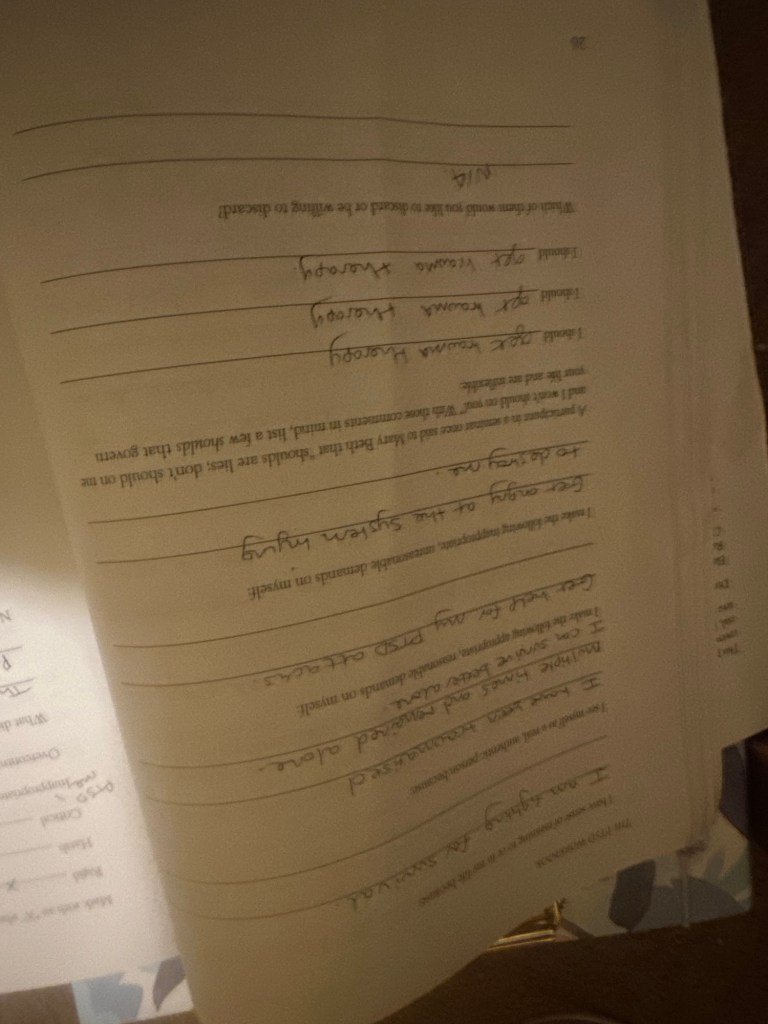 THE PTSD WORKBOOK
I have sense of meaning to or in my life because
I am fighting for survival.
I see myself as a real, authentic person because
I have been traumatised
multiple times and remained alone.
I can survive better alone.
I make the following appropriate, reasonable demands on myself:
Get help for my PTSD attacks.
I make the following inappropriate, unreasonable demands on myself:
Get angry at the system trying
to destroy me.
A participant in a seminar once said to Mary Beth that "shoulds are lies; don't should on me
and I won't should on you." With these comments in mind, list a few shoulds that govern
your life and are inflexible.
I should get trauma therapy
I should get trauma therapy
I should get trauma therapy.
Which of them would you like to discard or be willing to discard?
N/A
Mark with an "X"
Right x
Harsh
Critical
Inappropriate
PTSD
me
Overcoming
What di
Th